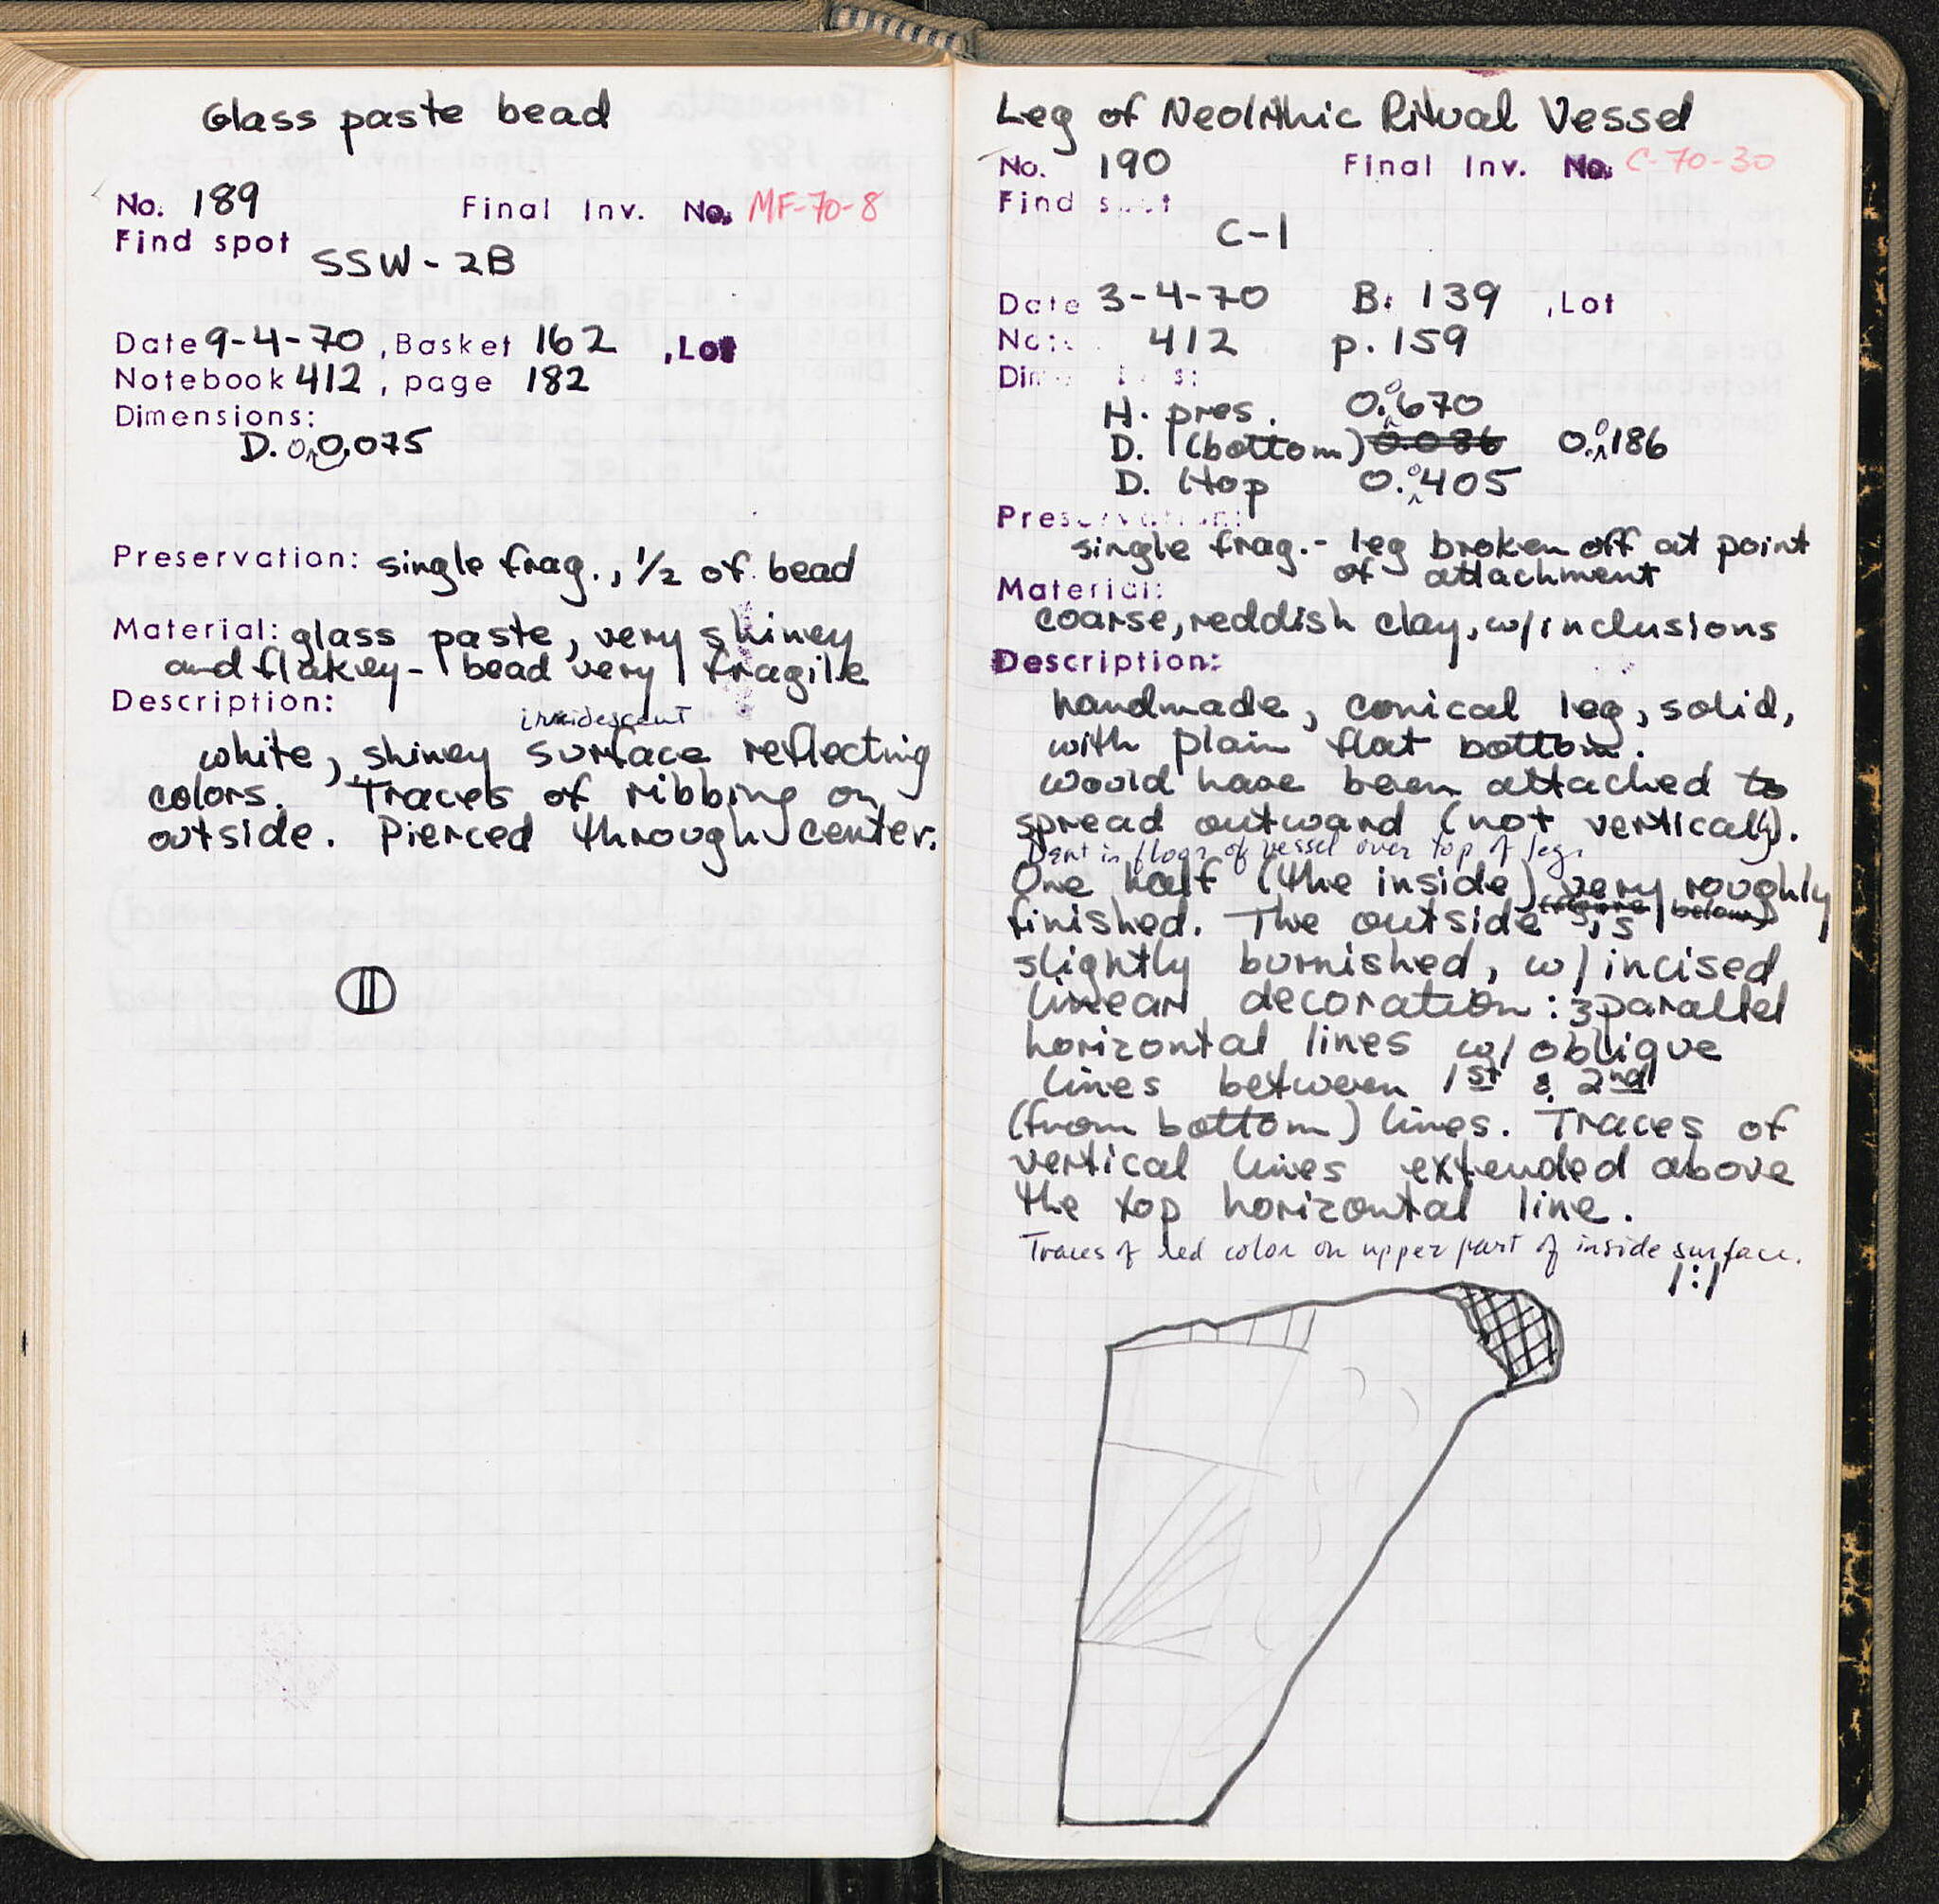 Glass paste bead
No. 189 Final Inv. No. MF-70-8
Find spot
SSW-2B
Date 9-4-70, Basket 162 , Lot
Notebook 412, page 182
Dimensions:
D. 0.0075
Preservation: single frag., 1/2 of bead
Material: glass paste, very shiney
and flakey - bead very fragile
Description:
irridescent
white, shiney surface reflecting
colors. Traces of ribbing on
outside. Pierced through center.
Leg of Neolithic Ritual Vessel
No. 190 Final Inv. No. C-70-30
Find spot
C-1
Date 3-4-70 B. 139 , Lot
412 p. 159
H. pres. 0.0670
D. (bottom) 0.086 0.0186
D. (top 0.0405
Preservation:
single frag. - leg broken off at point
of attachment
Material:
coarse, reddish clay, w/inclusions
Description:
handmade, conical leg, solid,
with plain flat bottom.
would have been attached to
spread outward (not vertically).
Dent in floor of vessel over top of leg.
One half (the inside) very roughly
finished. The outside is
slightly burnished, w/ incised
linear decoration: 3 parallel
horizontal lines w/ oblique
lines between 1st & 2nd
(from bottom) lines. Traces of
vertical lines extended above
the top horizontal line.
Traces of red color on upper part of inside surface.
1:1